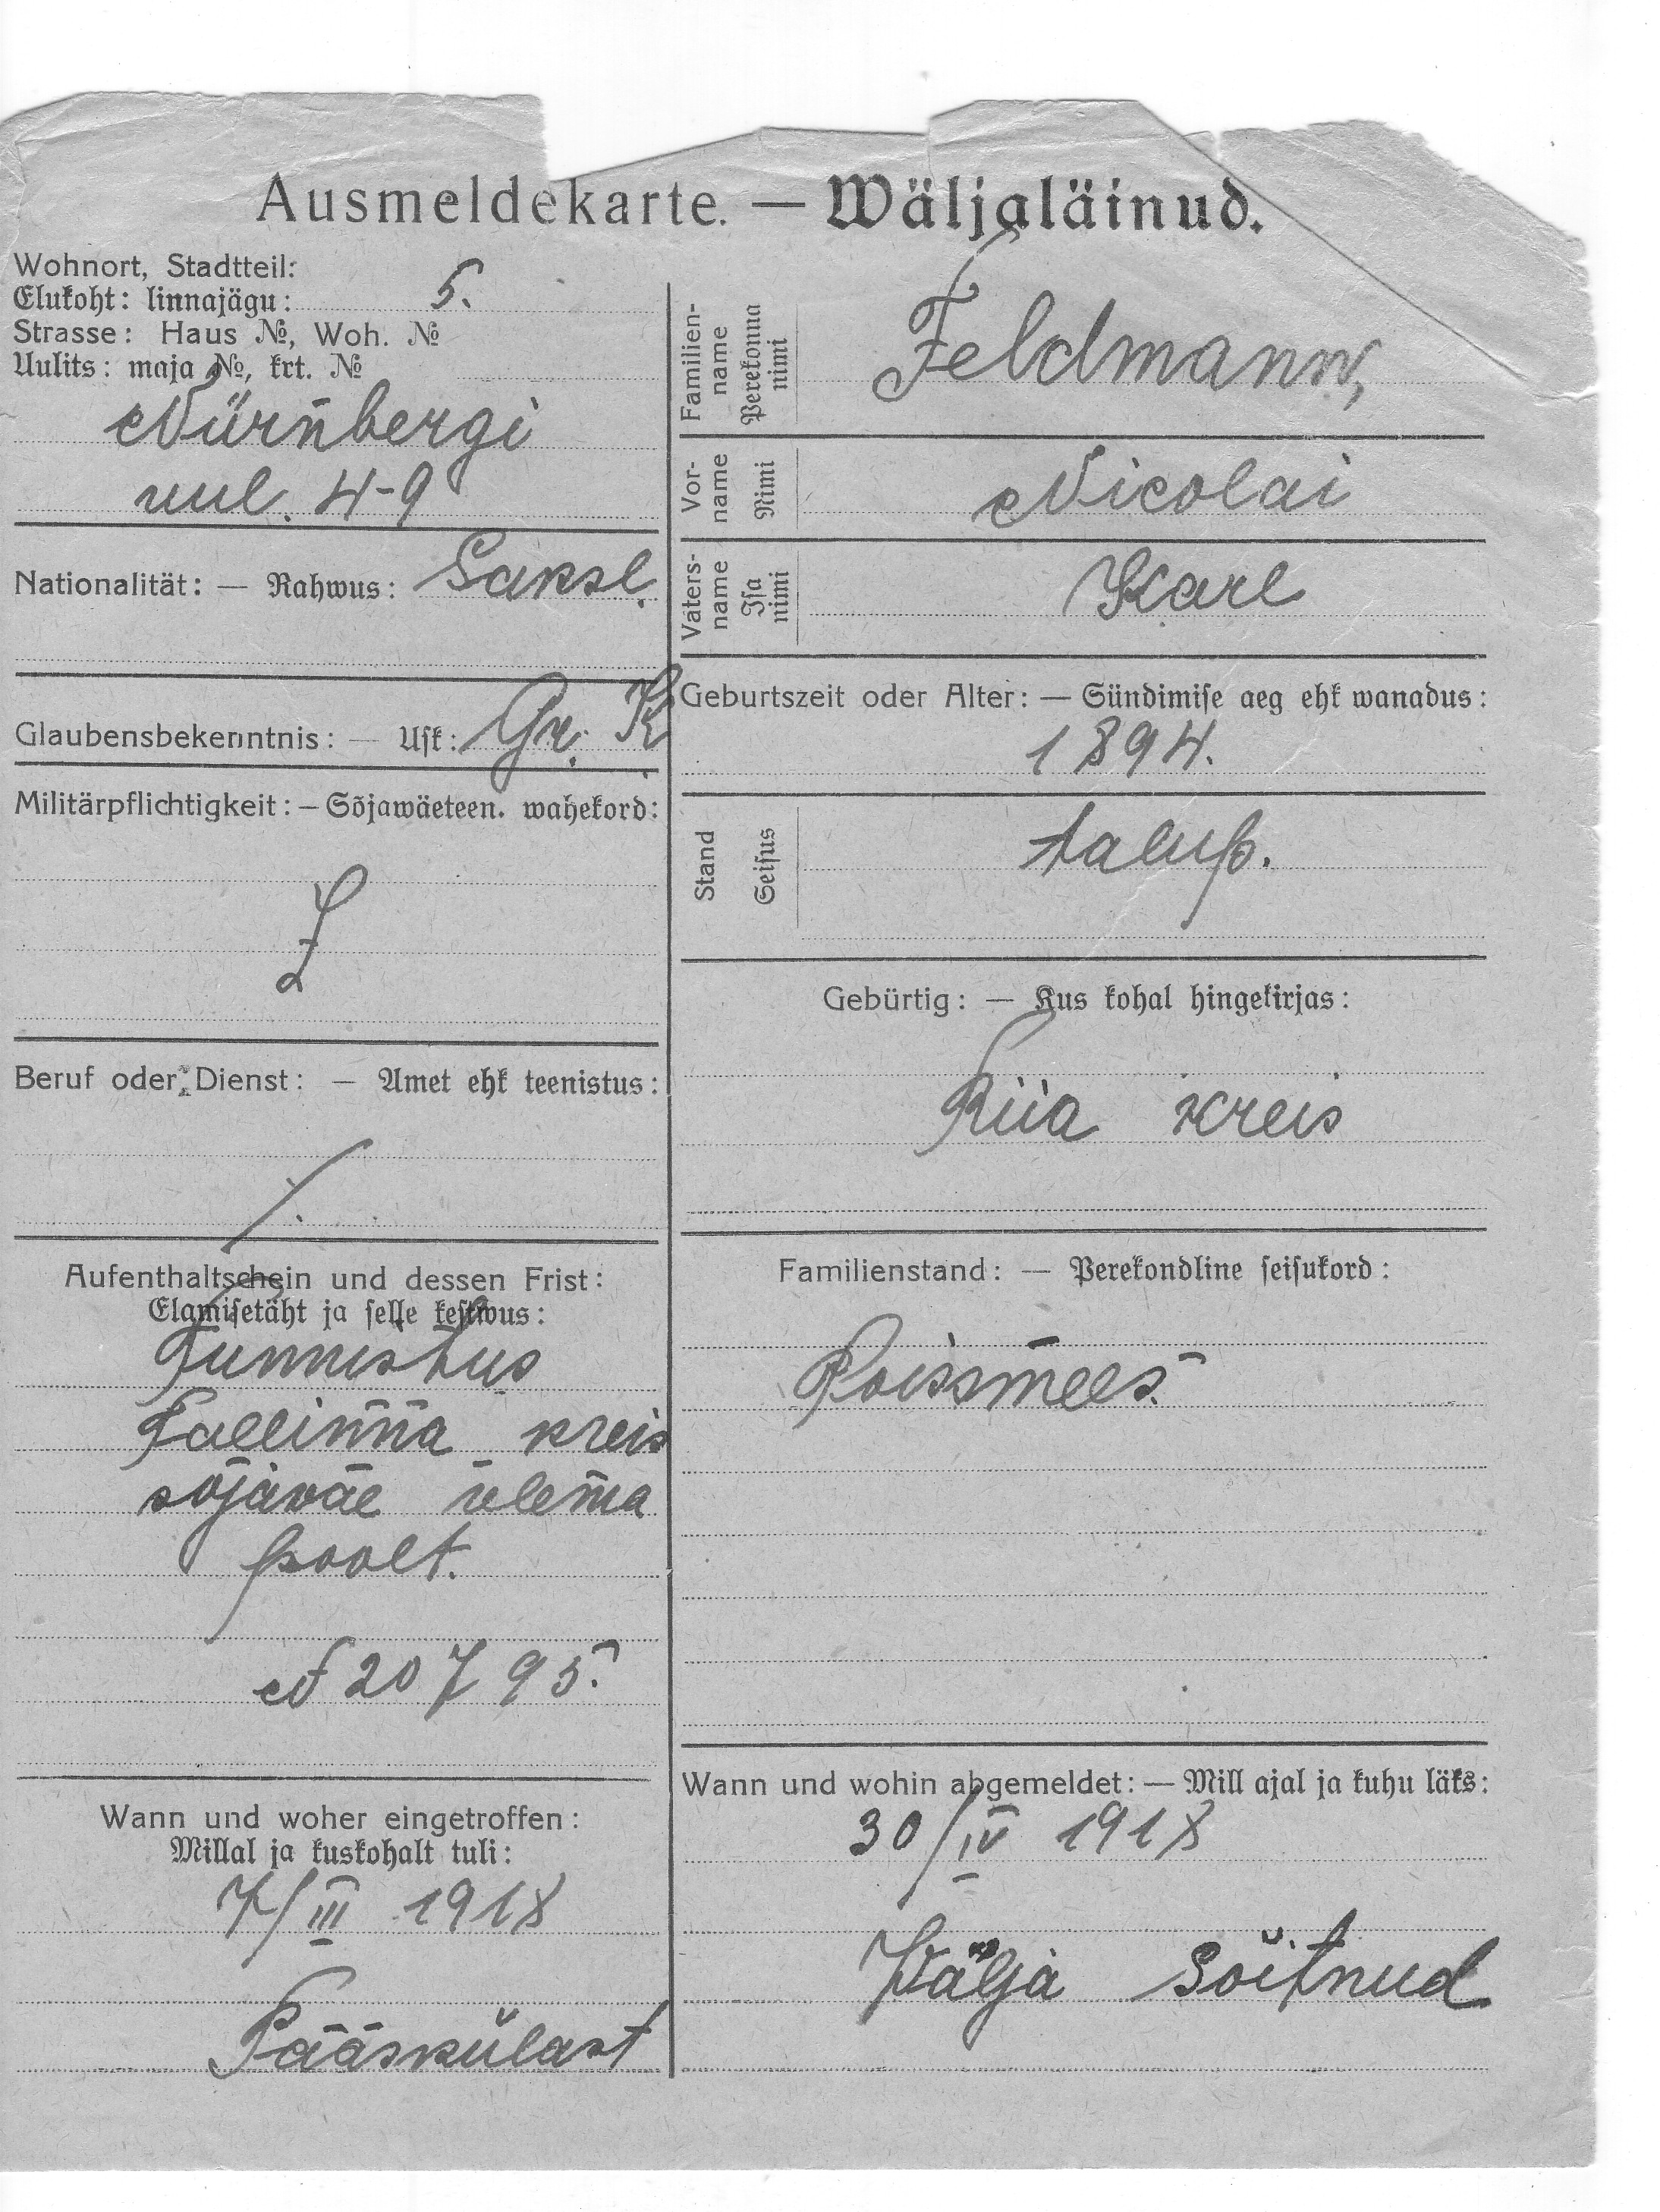 Ausmeldekarte. — Wäljaläinud.
Wohnort, Stadtteil:
Elukoht: linnajägu: 5.
Strasse: Haus №, Woh. №
Uulits: maja №, krt. №
Nürnbergi
uul. 4-9
Nationalität: — Rahwus: Saksl.
Glaubensbekenntnis: — Usk: Gr. K
Militärpflichtigkeit: — Sõjawäeteen. wahekord:
Beruf oder Dienst: — Amet ehk teenistus:
/.
Aufenthaltschein und dessen Frist:
Elamisetäht ja selle kestwus:
Tunnistus
Tallinna kreis
sõjaväe ülema
poolt.
№ 20795.
Wann und woher eingetroffen:
Millal ja kuskohalt tuli:
7/III 1918
Pääskülast
Familien-
name
Perekonna
nimi
Feldmann,
Vor-
name
Nimi
Nicolai
Vaters-
name
Isa
nimi
Karl
Geburtszeit oder Alter: — Sündimise aeg ehk wanadus:
1894.
Stand
Seisus
talup.
Gebürtig: — Kus kohal hingekirjas:
Riia kreis
Familienstand: — Perekondline seisukord:
Poissmees.
Wann und wohin abgemeldet: — Mill ajal ja kuhu läks:
30/IV 1918
Välja sõitnud